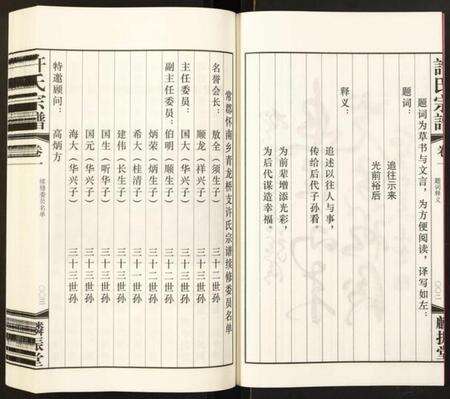 許氏宗譜
卷一
题词释义
〇〇二
麟振堂
题词为草书与文言，为方便阅读，译写如左：
题词：
追往示来
光前裕后
释义：
追述以往人与事，
传给后代子孙看。
为前辈增添光彩，
为后代谋造幸福。
常郡怀南乡青龙桥支许氏宗谱续修委员名单
名誉会长：放全（须生子）三十二世孙
主任委员：顺龙（祥兴子）三十三世孙
国大（华兴子）三十三世孙
副主任委员：伯明（顺生子）三十二世孙
炳荣（炳生子）三十二世孙
希大（桂清子）三十三世孙
建伟（长生子）三十三世孙
国生（听华子）三十三世孙
国元（华兴子）三十三世孙
海大（华兴子）三十三世孙
特邀顾问：高炳方
许氏宗譜
卷一
续修委员名单
〇〇三
麟振堂